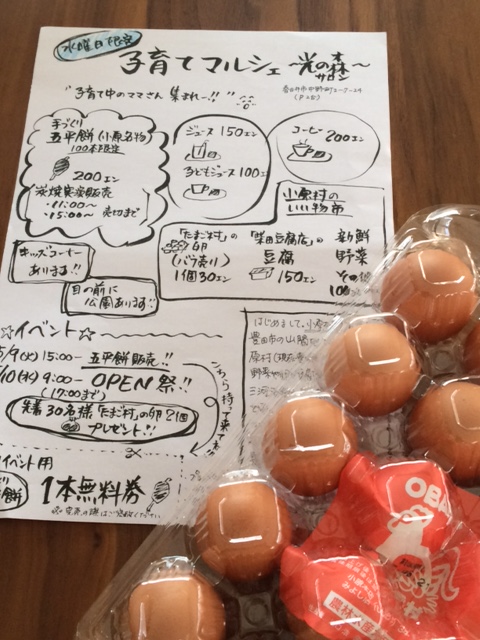 水曜日限定
子育てマルシェ ～光の森～
サロン
"子育て中のママさん 集まれー!!"
手づくり
五平餅(小原名物)
100本限定
200エン
炭焼実演販売
・11:00～
・15:00～ 売切まで
ジュース 150エン
子どもジュース 100エン
コーヒー
200エン
小原村の
いい物市
「たまご村」の
卵
(バラ売り)
1個30エン
「柴田豆腐店」の
豆腐
150エン
新鮮
野菜
その他
100
キッズコーナー
あります!!
目の前に
公園あります!!
☆イベント☆
/9(火) 15:00- 五平餅販売!!
/10(水) 9:00- OPEN祭!!
(17:00まで)
先着30名様 「たまご村」の卵2個
プレゼント!!
こちら持って来て
はじめまして。小原
豊田市の山
原村(現
野菜や
三河
イベント用
1本無料券
OBA